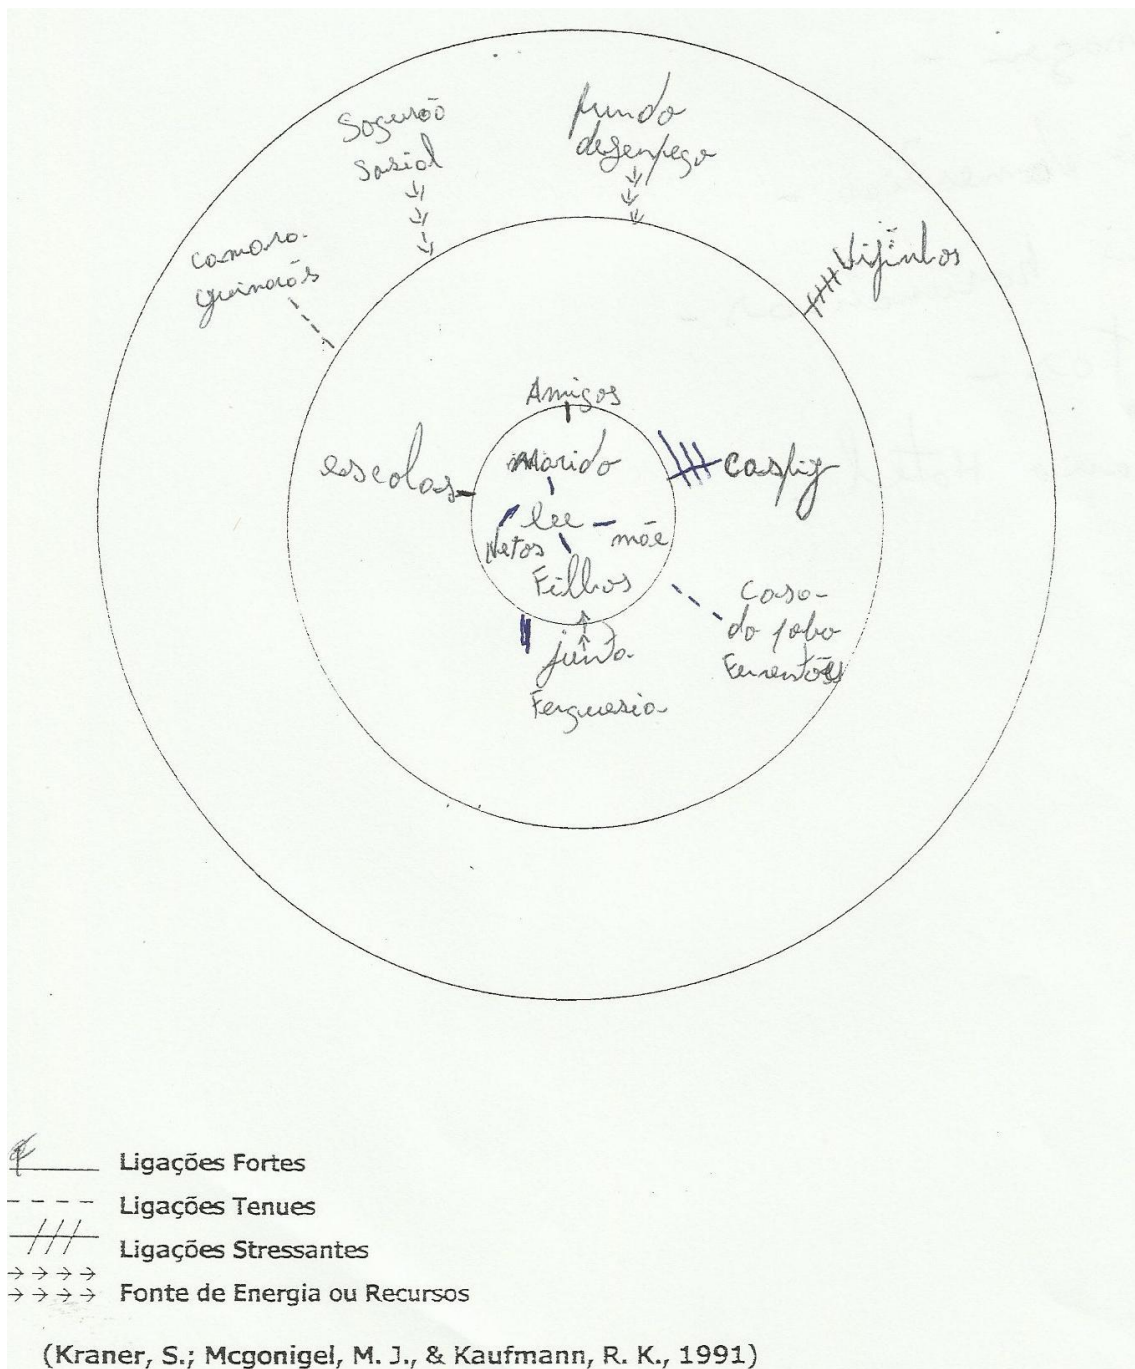 Segurão
Sosial
fundo
desenpego
camara.
guimarãs
Vizinhos
Amigos
escolas
marido
casfig
Netos
mãe
Filhos
Casa
do pobo
junta
Fenguesia
Ligações Fortes
Ligações Tenues
Ligações Stressantes
Fonte de Energia ou Recursos
(Kraner, S.; Mcgonigel, M. J., & Kaufmann, R. K., 1991)